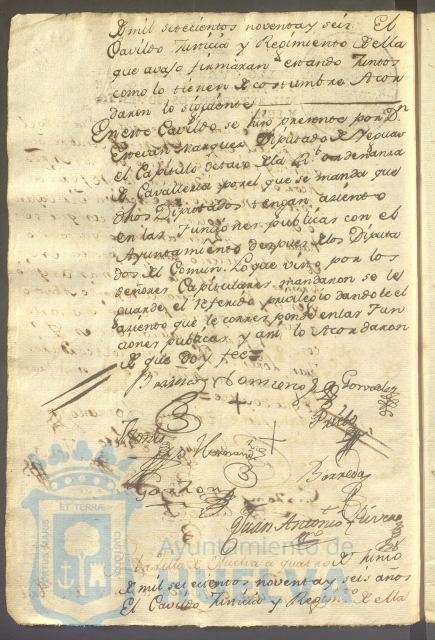 D mil setecientos noventa y seis. El
Cavildo Justicia y Regimiento de ella
que avajo firmaran estando Juntos
como lo tienen de costumbre Acor
daron lo siguiente
En este Cavildo se hizo presente por Dn
Estevan Marquez Diputado de Yeguas
el Capitulo octavo de la Rl ordenanza
de Cavalleria por el que se manda que
dhos Diputados tengan asiento
en las Funciones publicas con el
Ayuntamiento despues de los Diputa
dos del Comun. Lo que visto por los
señores Capitulares mandaron se le
guarde el referido privilegio dandole el
asiento que le corresponde en las Fun
ciones publicas y asi lo Acordaron
de que doy fee
Gonzalez
Hernandez
Barreda
Garzon
Juan Antonio
ET TERRÆ
Ayuntamiento de
HUELVA
a quatro de Junio
de mil setecientos noventa y seis años
El Cavildo Justicia y Regimto de ella